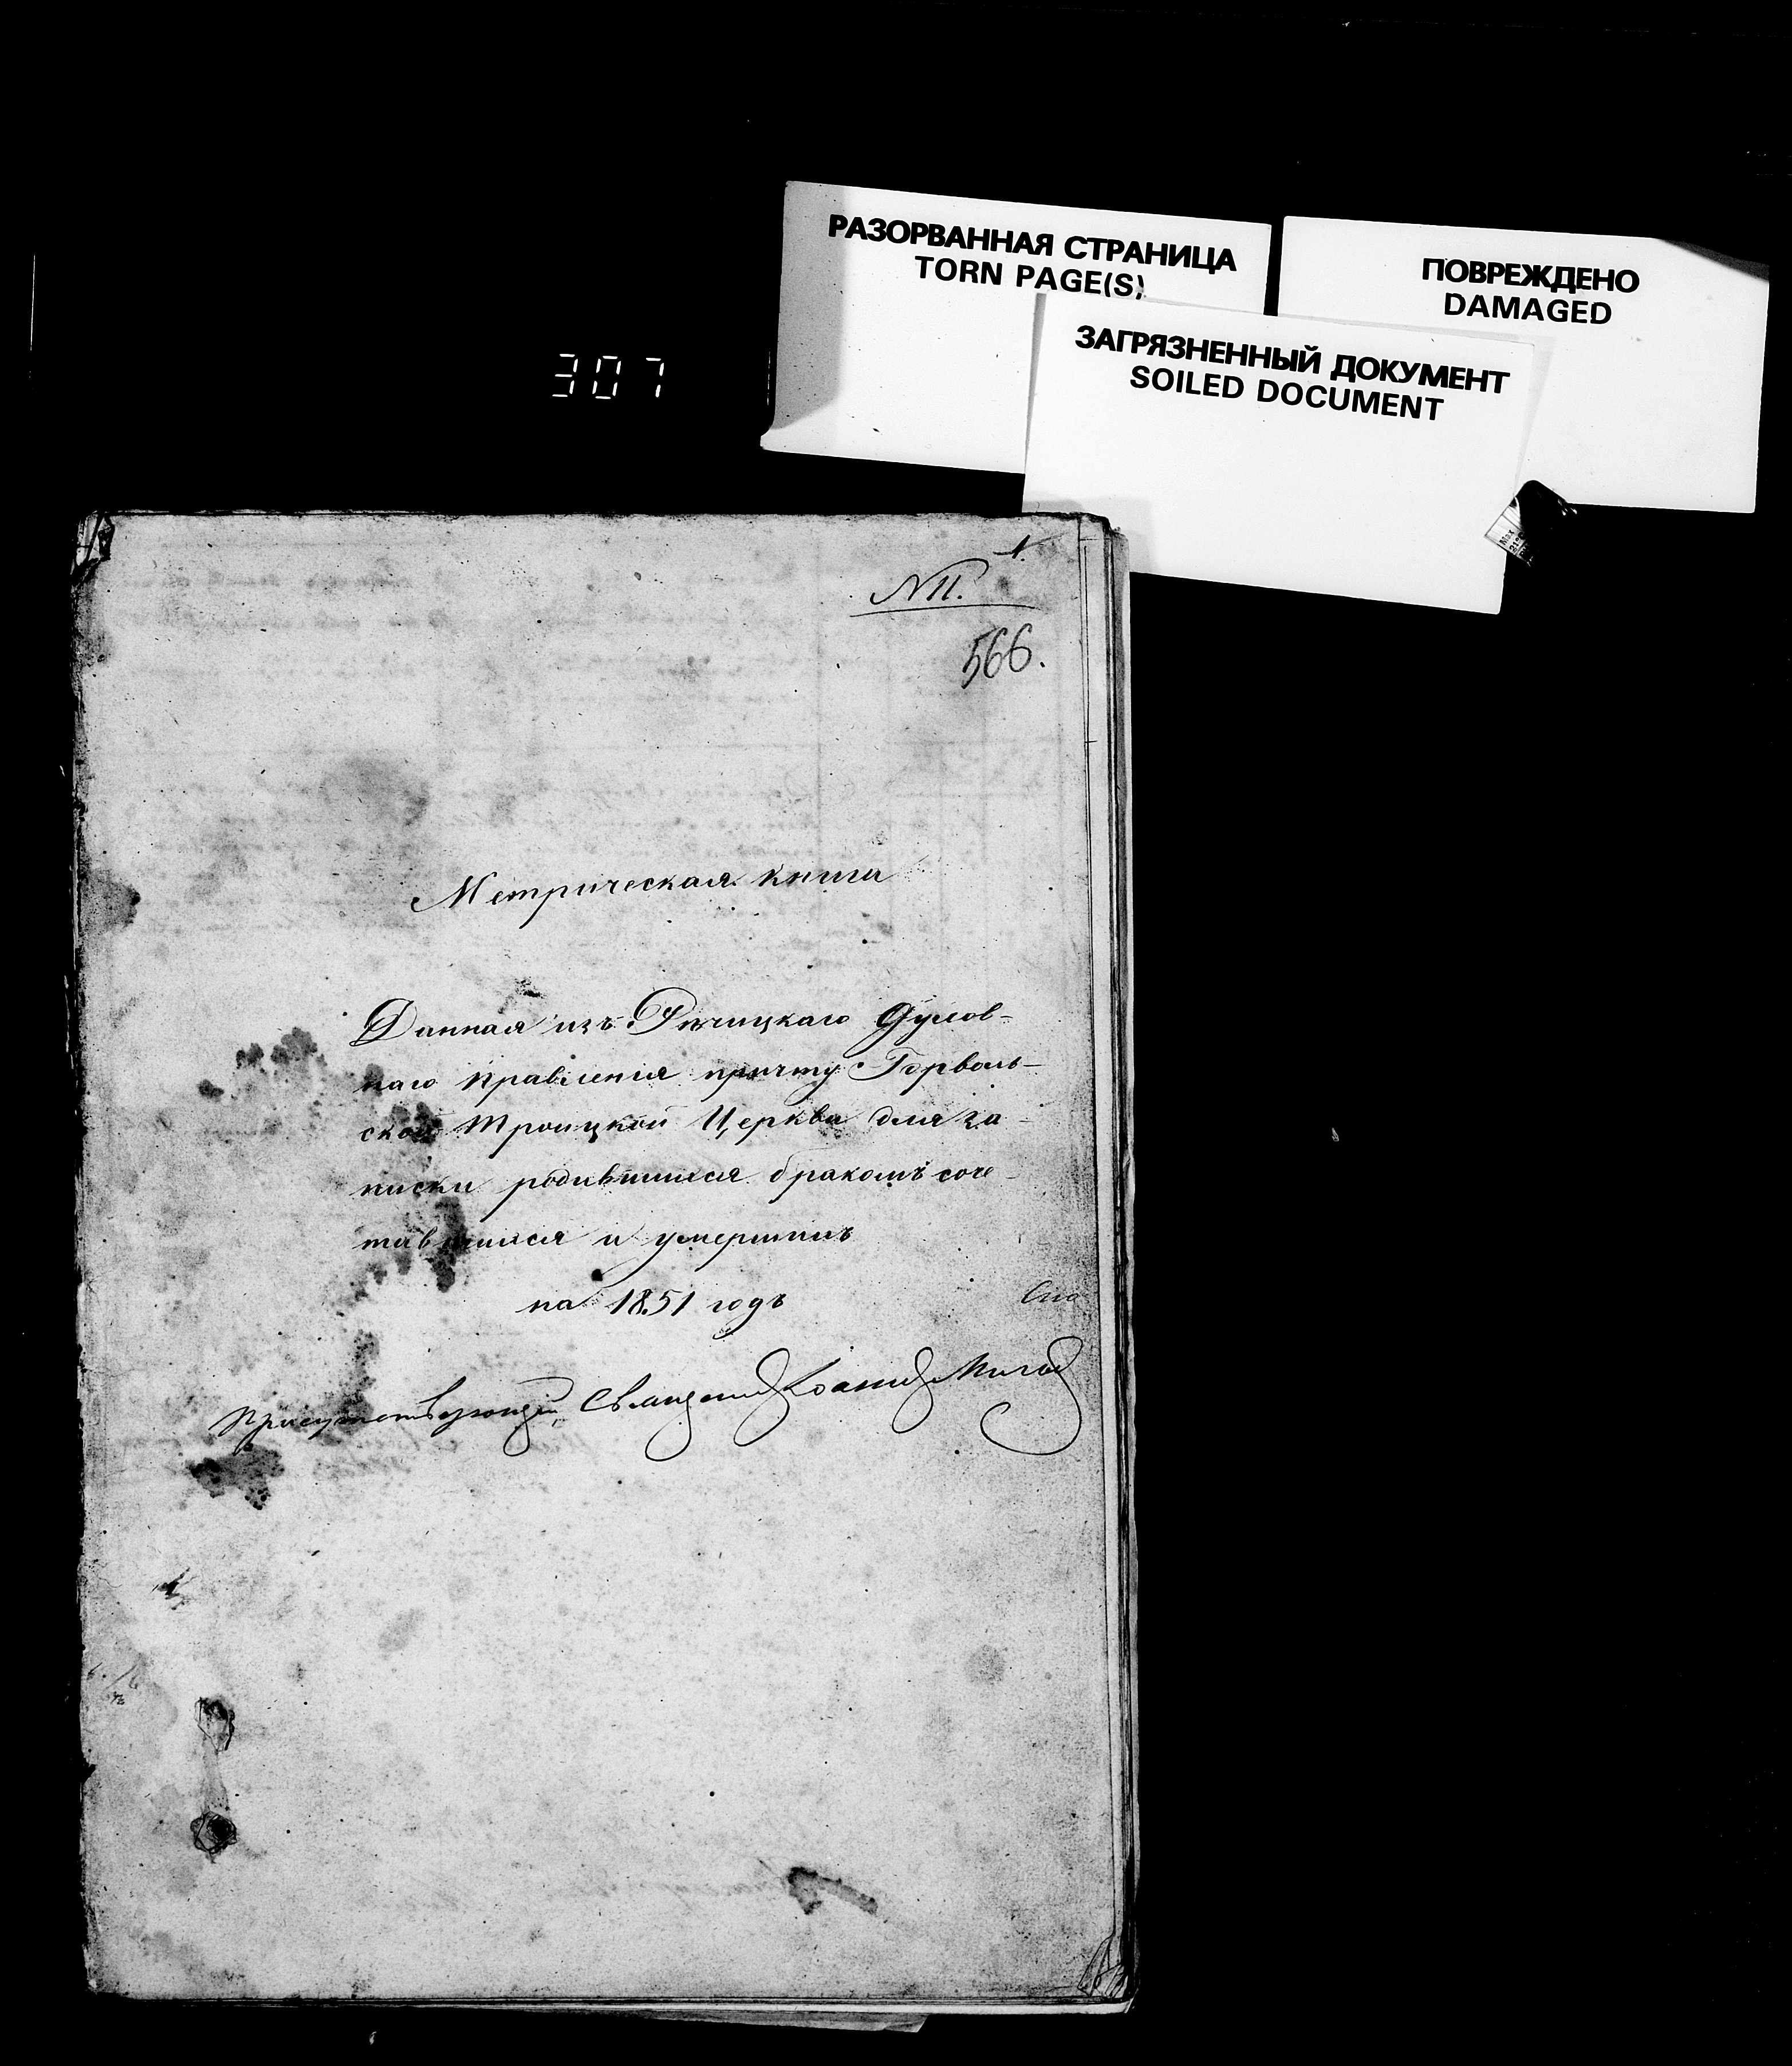 РАЗОРВАННАЯ СТРАНИЦА
TORN PAGE(S)
ПОВРЕЖДЕНО
DAMAGED
ЗАГРЯЗНЕННЫЙ ДОКУМЕНТ
SOILED DOCUMENT
307
1.
N 11.
566.
Метрическая книга
Данная изъ Рѣчицкаго Духов-
наго правленія причту Горваль-
ской Троицкой Церкви для за-
писки родившихся бракомъ соче-
тавшихся и умершихъ
на 1851 годъ
Присутствующій, Священникъ Іоаннъ